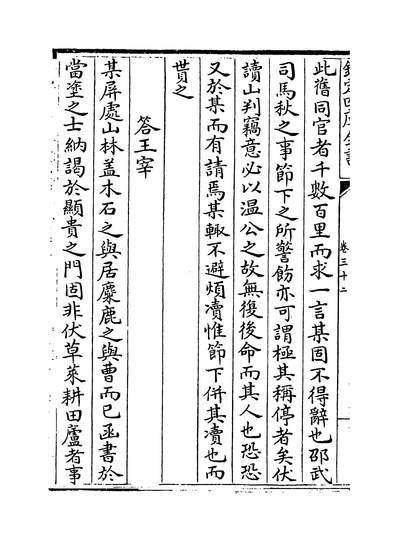 欽定四庫全書
卷三十二
此舊同官者千數百里而求一言某固不得辭也邵武
司馬秋之事節下之所警飭亦可謂極其稱停者矣伏
讀山判竊意必以温公之故無復後命而其人也恐恐
又於某而有請焉某輙不避煩凟惟節下併其凟也而
貰之
答王宰
某屏處山林盖木石之與居麋鹿之與曹而已函書於
當塗之士納謁於顯貴之門固非伏草萊耕田廬者事